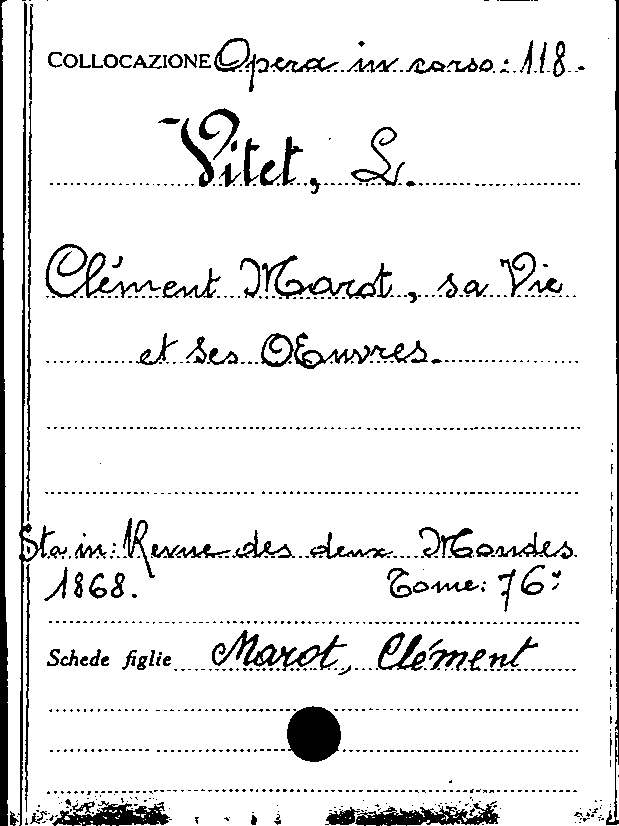 COLLOCAZIONE Opera in corso: 118.
Vitet, L.
Clément Marot, sa Vie
et ses OEuvres.
Sta in: Revue des deux Mondes
1868. Tome: 76°
Schede figlie Marot, Clément